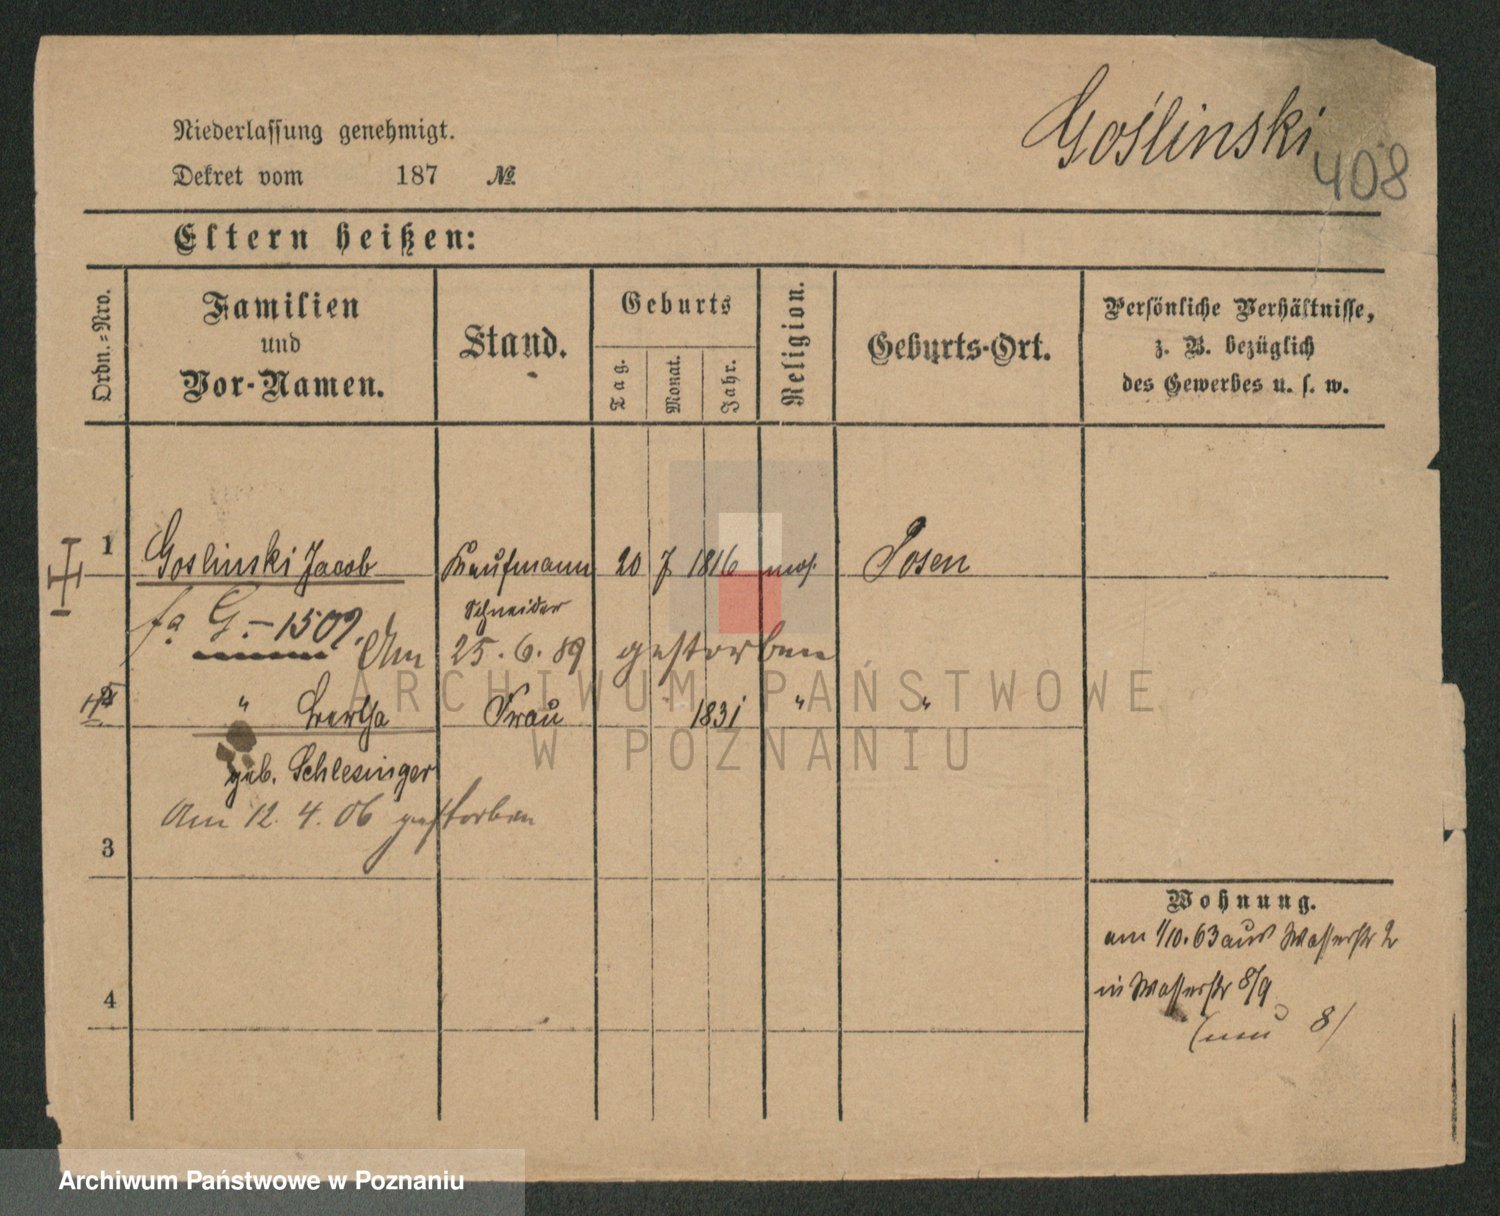 Gośliński
408
Niederlassung genehmigt.
Dekret vom 187 №
Eltern heißen:
Ordn.-Nro.
Familien
und
Vor-Namen.
Stand.
Geburts
Tag.
Monat.
Jahr.
Religion.
Geburts-Ort.
Persönliche Verhältnisse,
z. B. bezüglich
des Gewerbes u. s. w.
1 Goslinski Jacob Kaufmann 20 7 1816 mos. Posen
Schneider
fa G.-1509.
Am 25.6.89 gestorben
2 " Bertha Frau 1831 " "
geb. Schlesinger
Am 12.4.06 gestorben
3
4
Wohnung.
am 1/10.63 aus Wasserstr 2
in Wasserstr 8/9
(neu 8/
ARCHIWUM PAŃSTWOWE
W POZNANIU
Archiwum Państwowe w Poznaniu